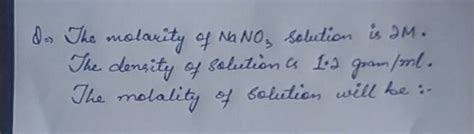 Q→ The molarity of NaNO₃ solution is 2M.
The density of solution is 1.2 gram/ml.
The molality of solution will be :-